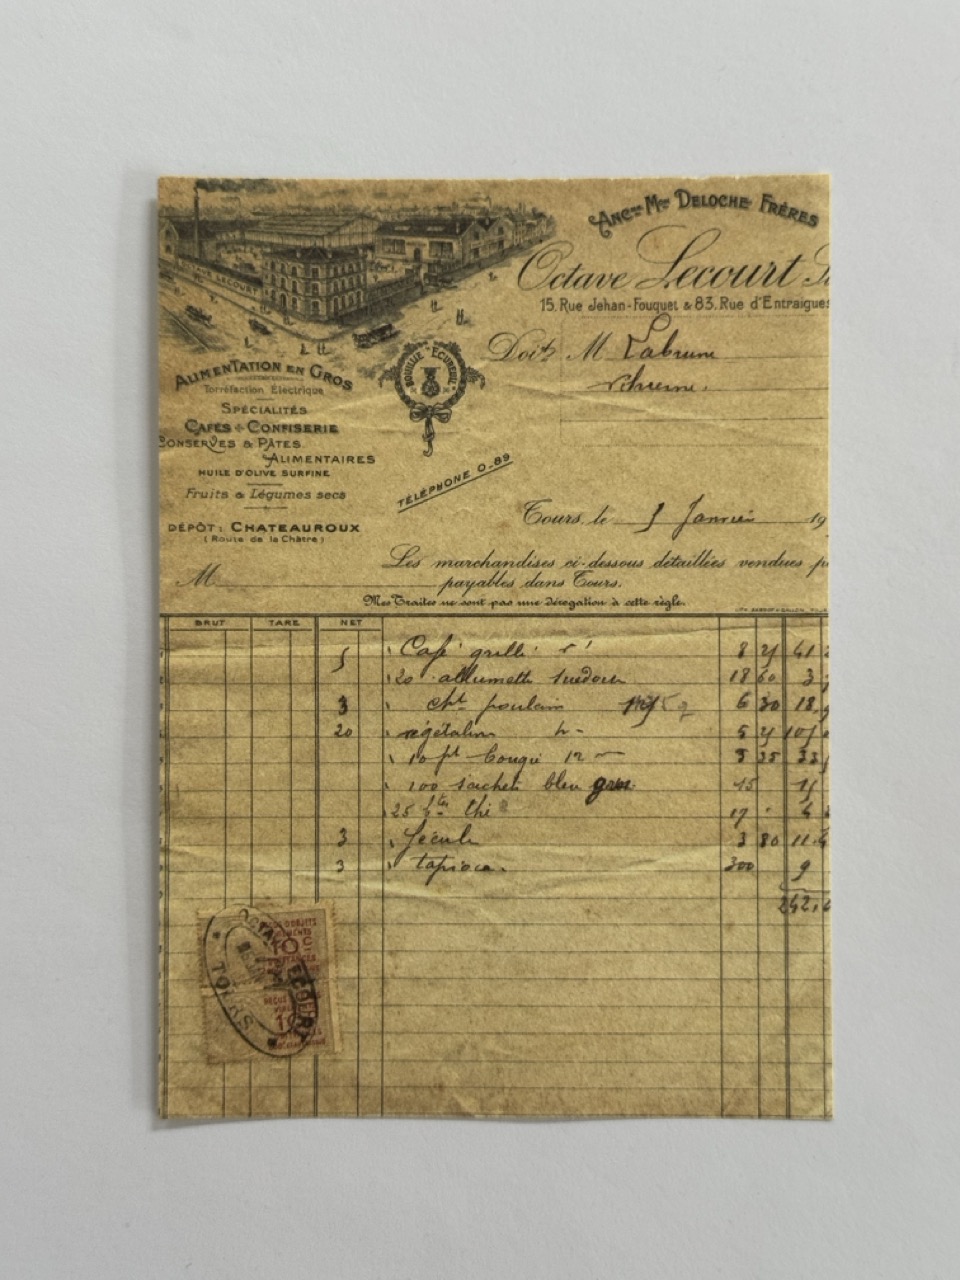 Anc.ne M.on DELOCHE FRÈRES
Octave Lecourt
15, Rue Jehan-Fouquet & 83, Rue d'Entraigues
OCTAVE LECOURT
BOUILLIE "ÉCUREUIL"
ALIMENTATION EN GROS
Torréfaction Électrique
SPÉCIALITÉS
CAFÉS + CONFISERIE
CONSERVES & PÂTES
ALIMENTAIRES
HUILE D'OLIVE SURFINE
Fruits & Légumes secs
DÉPÔT: CHATEAUROUX
(Route de la Châtre)
TÉLÉPHONE 0-89
Doit M Labrune
Tours, le Janvier 19
Les marchandises ci-dessous détaillées vendues
M payables dans Tours.
Mes Traites ne sont pas une dérogation à cette règle.
BRUT TARE NET
5 Café grillé 8 25 41
20 allumette suedoise 18 60 3
3 cht poulain 6 30 18
20 végétaline 5 25 105
10 pt bougie 12 3 35 33
100 sachets bleu gros 15 15
25 btes thé 17 4
3 fécule 3 80 11.4
3 tapioca 300 9
242
OCTAVE LECOURT
10c
TOURS